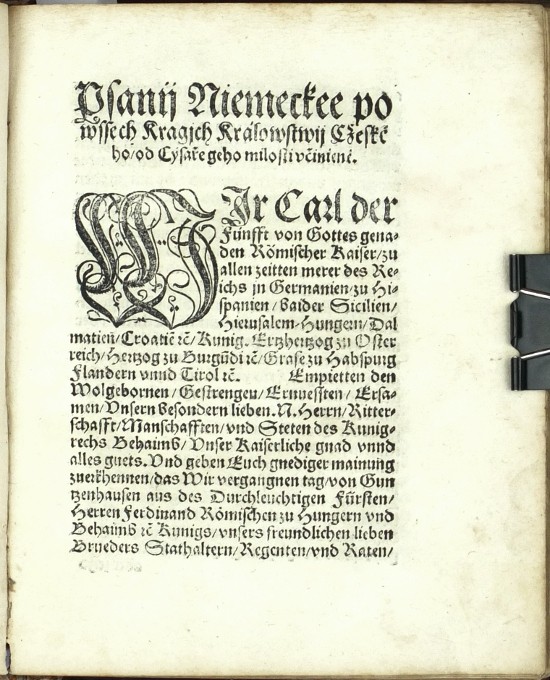 Psanij Niemeckee po
wssech Kragjch Kralowstwij Cżeske
ho/od Cysaře geho milosti včiniene.
WIr Carl der
Fünfft von Gottes gena-
den Römischer Kaiser/zu
allen zeitten merer des Re-
ichs jn Germanien/zu Hi-
spanien/baider Sicilien/
Hierusalem/Hungern/Dal
matien/Croatie ꝛc̄/Kunig. Ertzhertzog zu Oster
reich/Hertzog zu Burgūdi ꝛc̄/Grafe zu Habspurg
Flandern vnnd Tirol ꝛc̄. Empietten den
Wolgebornen/Gestrengen/Ernuessten/Ersa-
men/Vnsern besondern lieben. N. Herrn/Ritter-
schafft/Manschafften/vnd Steten des Kunig-
rechs Behaimb/Vnser Kaiserliche gnad vnnd
alles guets. Vnd geben Euch gnediger mainung
zuerkhennen/das Wir vergangnen tag/von Gun
tzenhausen aus des Durchleuchtigen Fürsten/
Herren Ferdinand Römischen zu Hungern vnd
Behaimb ꝛc̄ Kunigs/vnsers freundlichen lieben
Brueders Stathaltern/Regenten/vnd Raten/